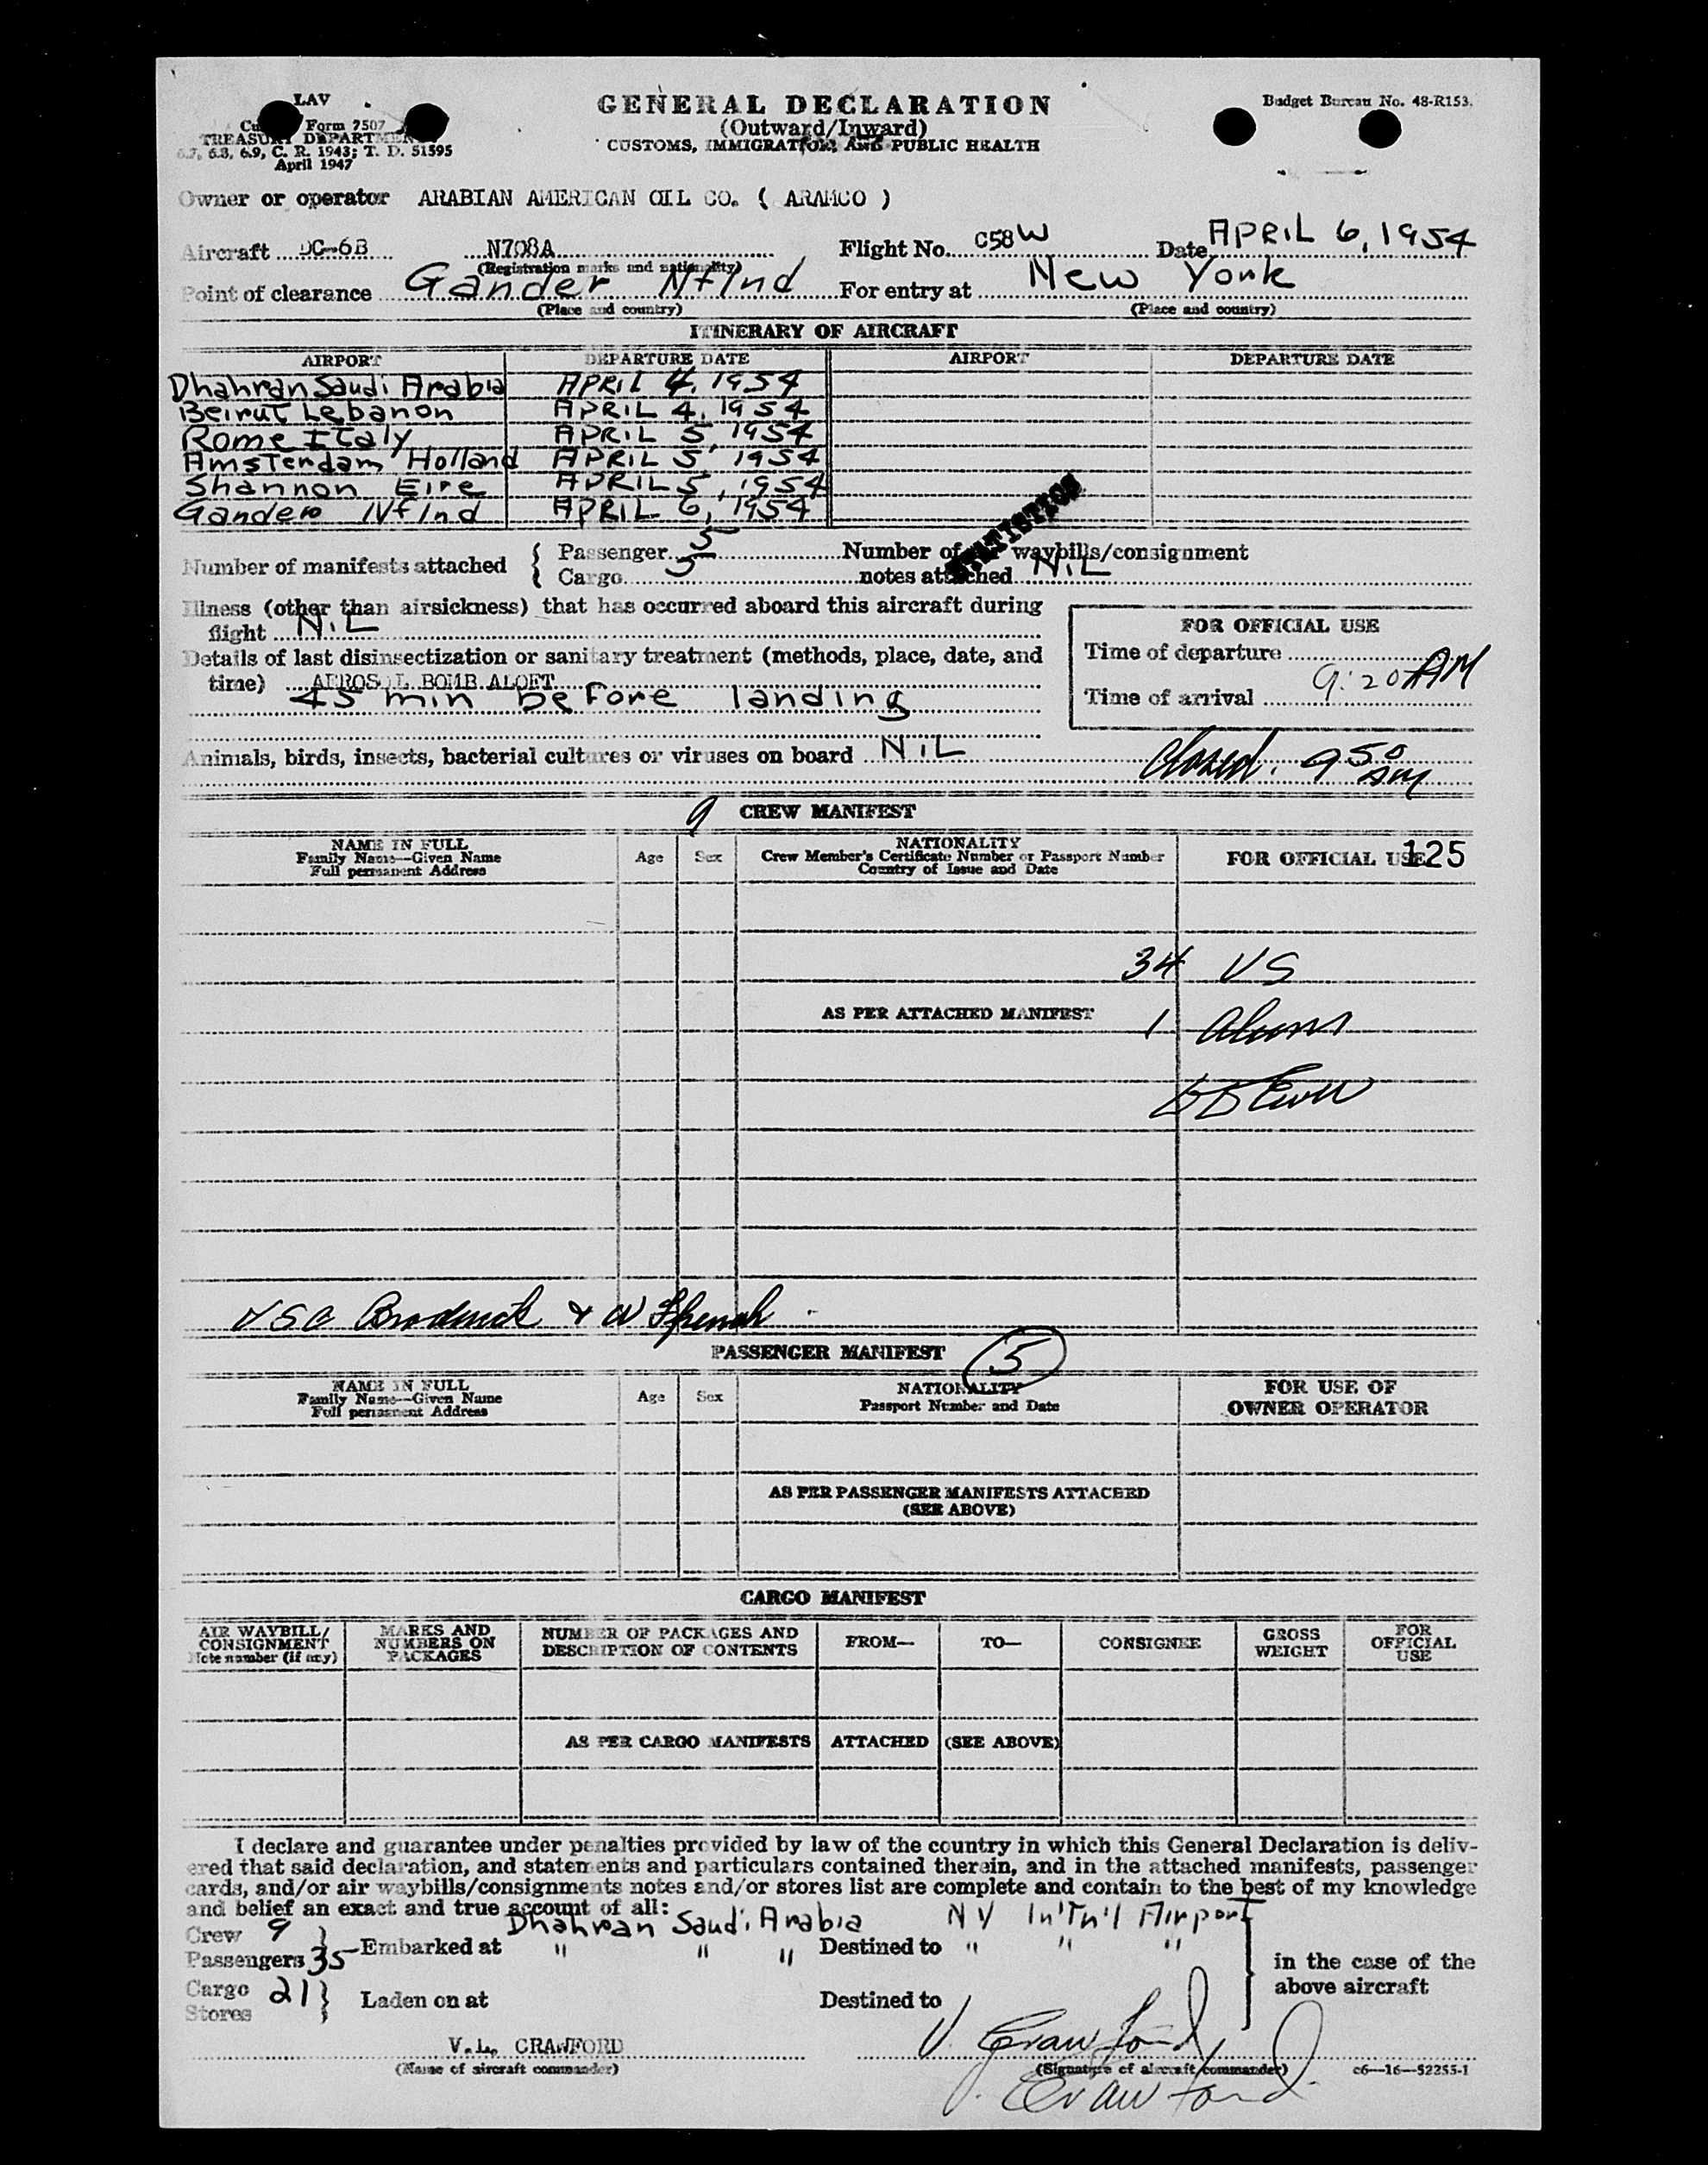 LAV
GENERAL DECLARATION
Budget Bureau No. 48-R153.
Form 7507
(Outward/Inward)
TREASURY DEPARTMENT
CUSTOMS, IMMIGRATION, AND PUBLIC HEALTH
6.7, 6.8, 6.9, C. R. 1943; T. D. 51595
April 1947
Owner or operator ARABIAN AMERICAN OIL CO. ( ARAMCO )
Aircraft DC-6B N708A Flight No. C58W Date APRIL 6, 1954
(Registration marks and nationality)
Point of clearance Gander Nflnd For entry at New York
(Place and country) (Place and country)
ITINERARY OF AIRCRAFT
AIRPORT DEPARTURE DATE AIRPORT DEPARTURE DATE
Dhahran Saudi Arabia APRIL 4, 1954
Beirut Lebanon APRIL 4, 1954
Rome Italy APRIL 5, 1954
Amsterdam Holland APRIL 5, 1954
Shannon Eire APRIL 5, 1954
Gander Nflnd APRIL 6, 1954
STATISTICS
Number of manifests attached { Passenger 5 Number of air waybills/consignment
Cargo 5 notes attached NiL
Illness (other than airsickness) that has occurred aboard this aircraft during
flight NiL
FOR OFFICIAL USE
Details of last disinsectization or sanitary treatment (methods, place, date, and
time) AEROSOL BOMB ALOFT
45 min before landing
Time of departure
Time of arrival 9:20 AM
Animals, birds, insects, bacterial cultures or viruses on board NiL
Closed. 9 50 AM
9 CREW MANIFEST
NAME IN FULL
Family Name—Given Name
Full permanent Address
Age Sex
NATIONALITY
Crew Member's Certificate Number or Passport Number
Country of Issue and Date
FOR OFFICIAL USE 125
34 US
AS PER ATTACHED MANIFEST
1 Aliens
Broderick &
PASSENGER MANIFEST 5
NAME IN FULL
Family Name—Given Name
Full permanent Address
Age Sex
NATIONALITY
Passport Number and Date
FOR USE OF
OWNER OPERATOR
AS PER PASSENGER MANIFESTS ATTACHED
(SEE ABOVE)
CARGO MANIFEST
AIR WAYBILL/
CONSIGNMENT
Note number (if any)
MARKS AND
NUMBERS ON
PACKAGES
NUMBER OF PACKAGES AND
DESCRIPTION OF CONTENTS
FROM— TO— CONSIGNEE
GROSS
WEIGHT
FOR
OFFICIAL
USE
AS PER CARGO MANIFESTS ATTACHED (SEE ABOVE)
I declare and guarantee under penalties provided by law of the country in which this General Declaration is deliv-
ered that said declaration, and statements and particulars contained therein, and in the attached manifests, passenger
cards, and/or air waybills/consignments notes and/or stores list are complete and contain to the best of my knowledge
and belief an exact and true account of all:
Crew 9 } Dhahran Saudi Arabia NY In'Tn'l Airport
Passengers 35 Embarked at " " " Destined to " " " in the case of the
above aircraft
Cargo 21 } Laden on at Destined to
Stores
V.L. CRAWFORD V. Crawford
(Name of aircraft commander) (Signature of aircraft commander) c6—16—52255-1
V. Crawford